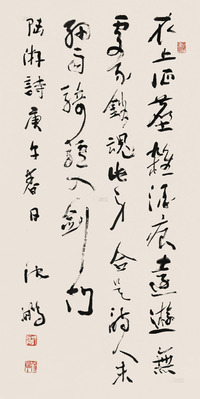 衣上征塵雜酒痕遠遊無
處不銷魂此身合是詩人未
細雨騎驢入劍門
陸游詩庚午春日 沈鵬